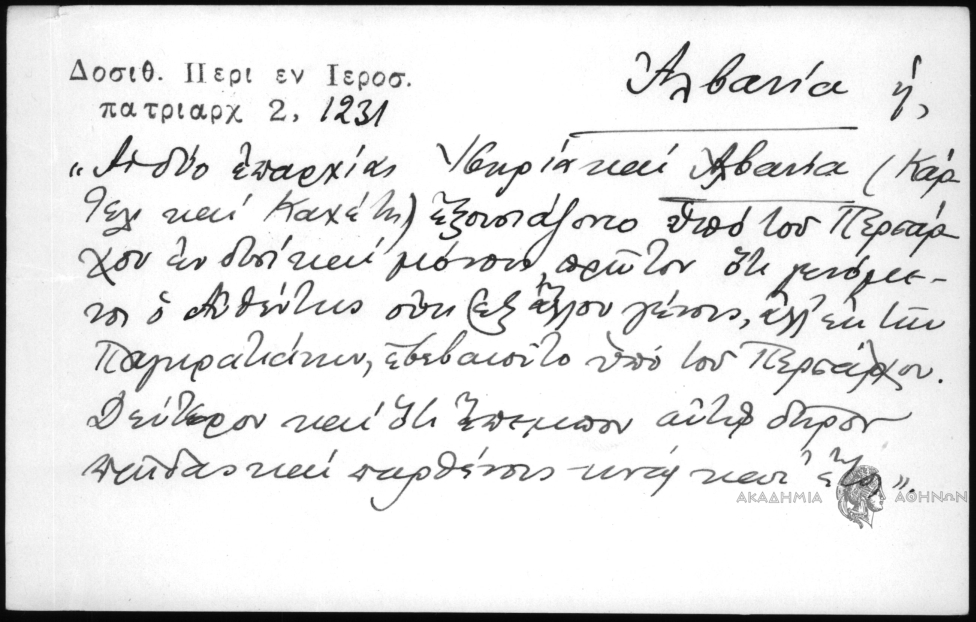 Δοσιθ. Περι εν Ιεροσ.
πατριαρχ 2, 1231
Ἀλβανία ἡ,
„Αἱ δύο ἐπαρχίας Ἰβηρία καὶ Ἀλβανία (Κάρ-
τελ καὶ Καχέτη) ἐξουσιάζοντο ὑπὸ τοῦ Περσάρ-
χου ἐν δυσὶ καὶ μόνον, πρῶτον ὅτι γενόμε-
νος ὁ Αὐθέντης οὐκ ἐξ ἄλλου γένους, ἀλλ' ἐκ τῶν
Παγκρατιάνων, ἐβεβαιοῦτο ὑπὸ τοῦ Περσάρχου.
Δεύτερον καὶ ὅτι ἔπεμπον αὐτῷ δῶρον
παῖδας καὶ παρθένους κατ' ἔτος".
ΑΚΑΔΗΜΙΑ ΑΘΗΝΩΝ